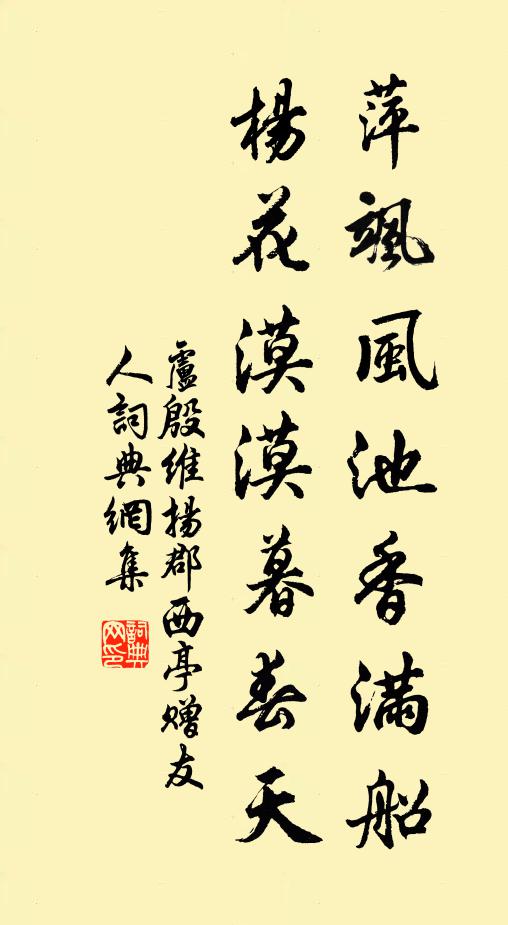 萍飒風池香滿船
楊花漠漠暮春天
盧殷維揚郡西亭贈友
人詞典網集
詞典
网印